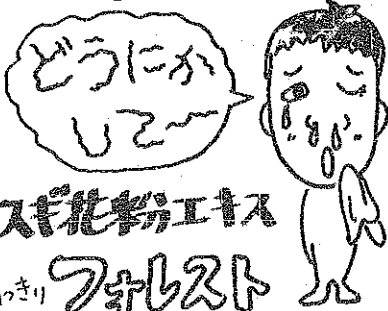 どうにか
して〜
スギ花粉エキス
フォレスト